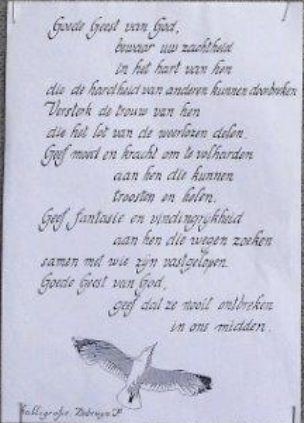 Goede Geest van God,
bewaar uw zachtheid
in het hart van hen
die de hardheid van anderen kunnen doorbreken
Versterk de trouw van hen
die het lot van de weerlozen delen.
Geef moed en kracht om te volharden
aan hen die kunnen
troosten en helen.
Geef fantasie en vindingrijkheid
aan hen die wegen zoeken
samen met wie zijn vastgelopen.
Goede Geest van God,
geef dat ze nooit ontbreken
in ons midden.